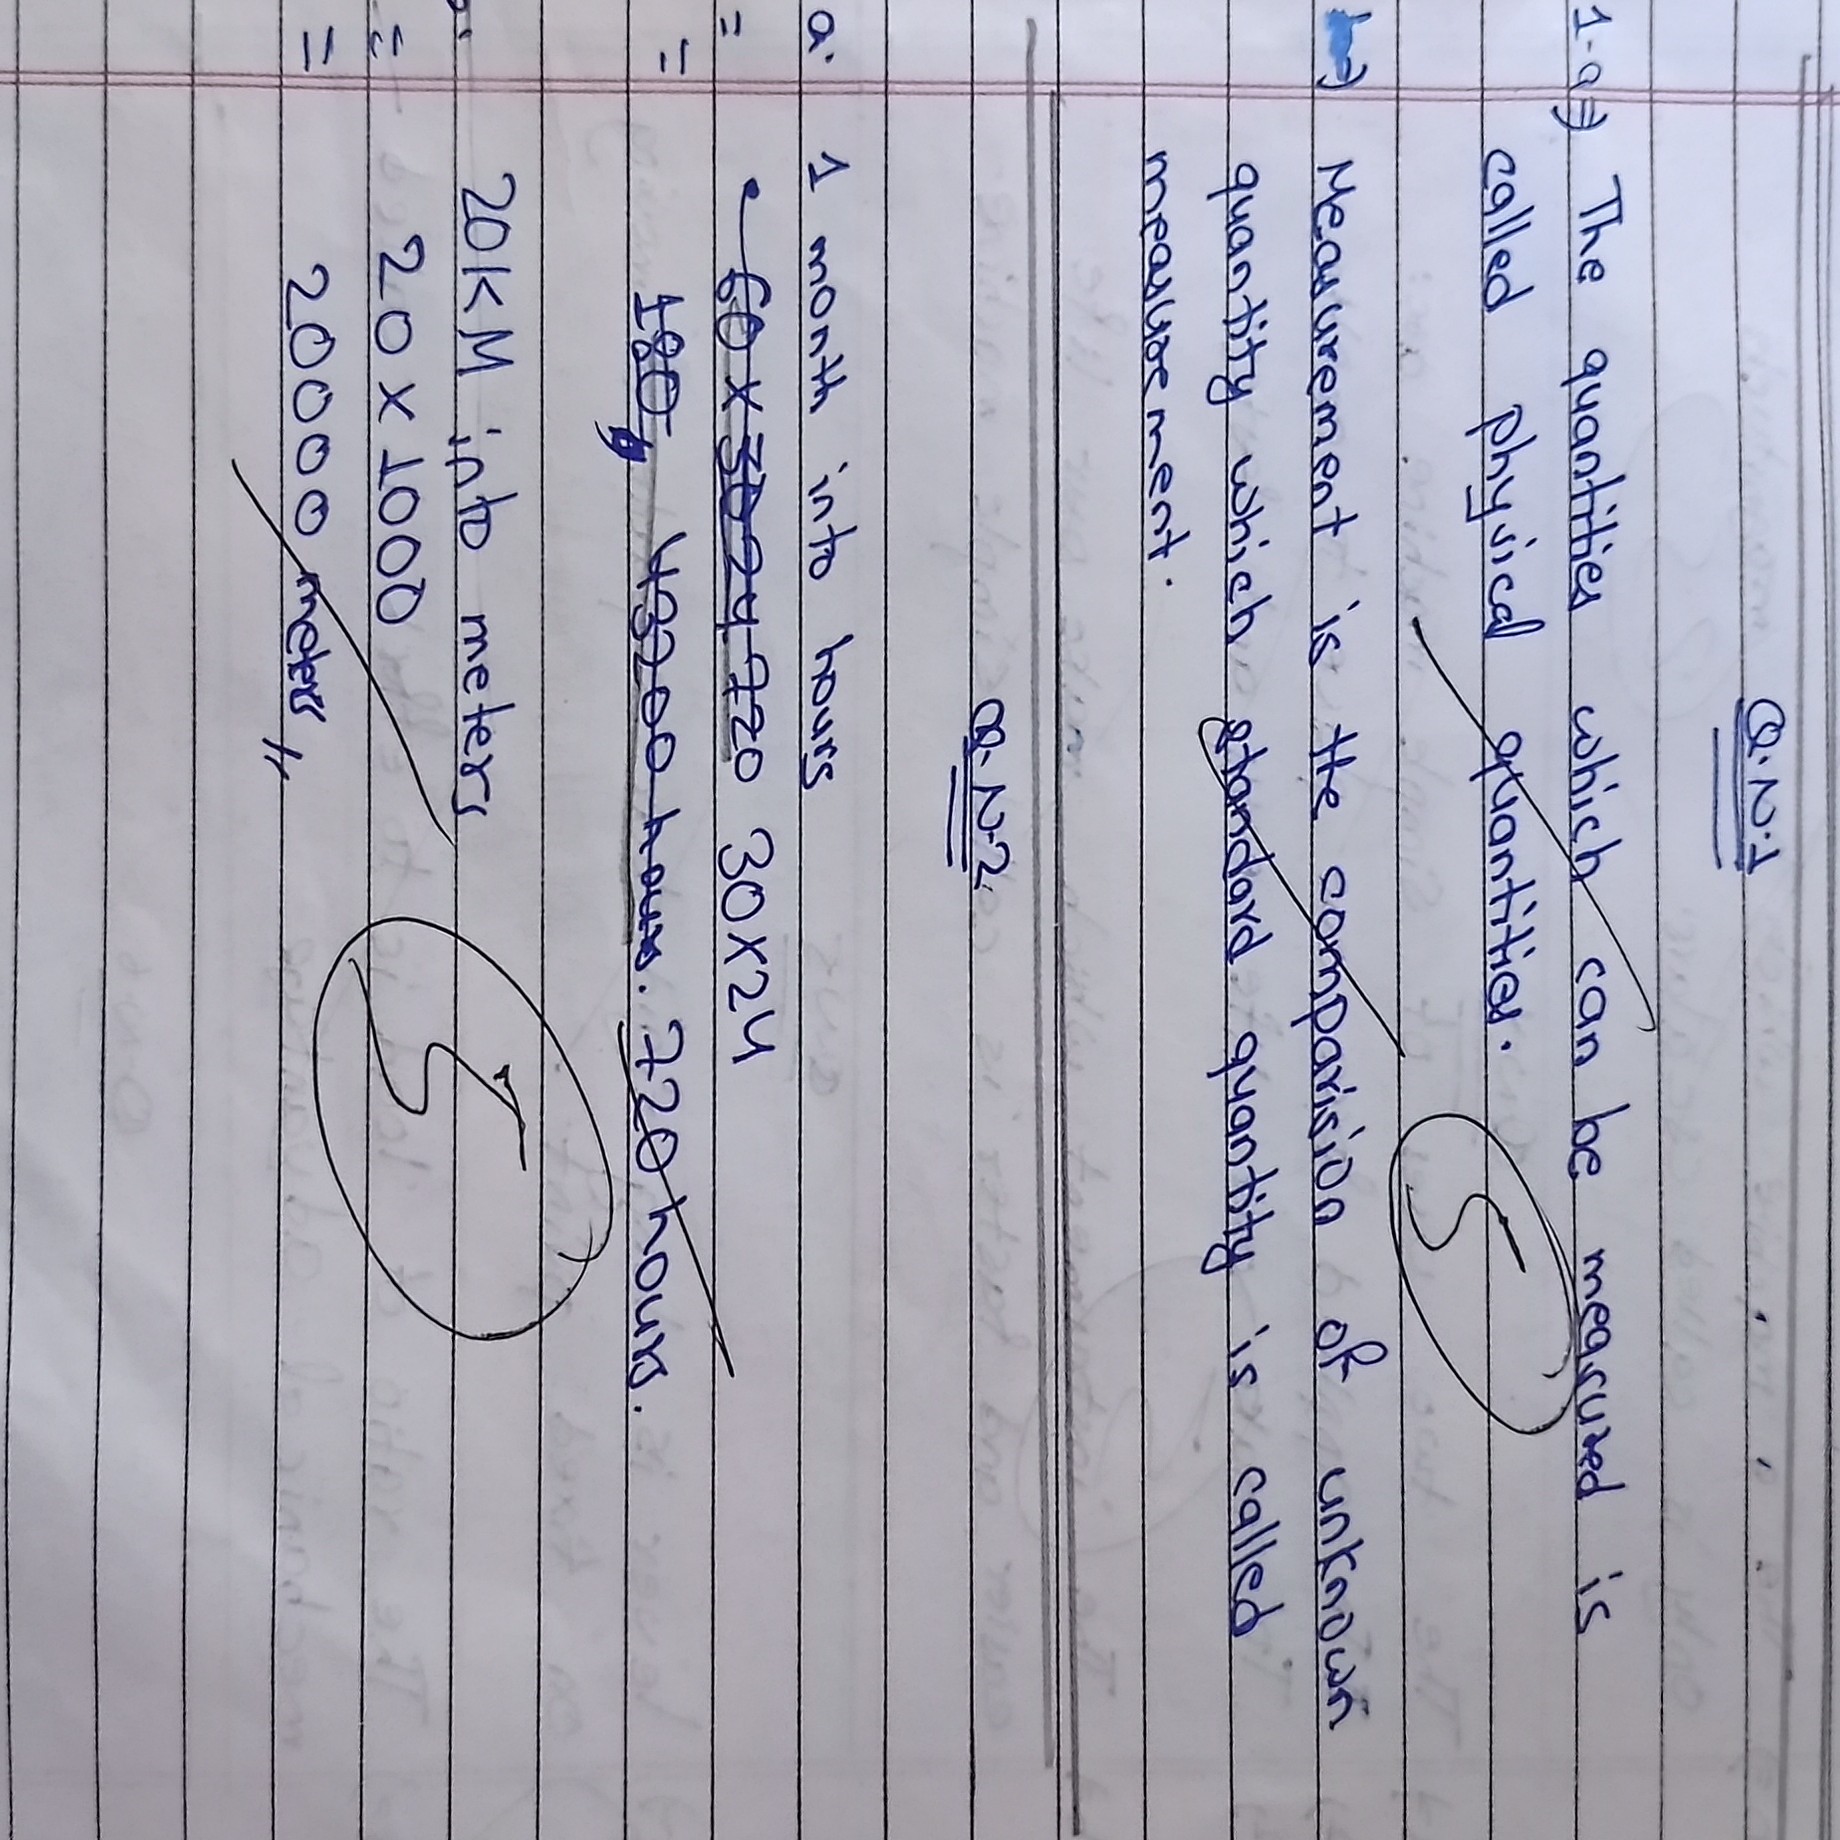 Q.N.1
1-a⇒ The quantities which can be measured is
called physical quantities.
5
b⇒ Measurement is the comparision of unknown
quantity which standard quantity is called
measurement.
Q.N.2
a. 1 month into hours
= 60 x 30 24 720 30x24
= 180, 43200 hours. 720 hours.
20KM into meters
= 20 x 1000
5
= 20000 meters,,